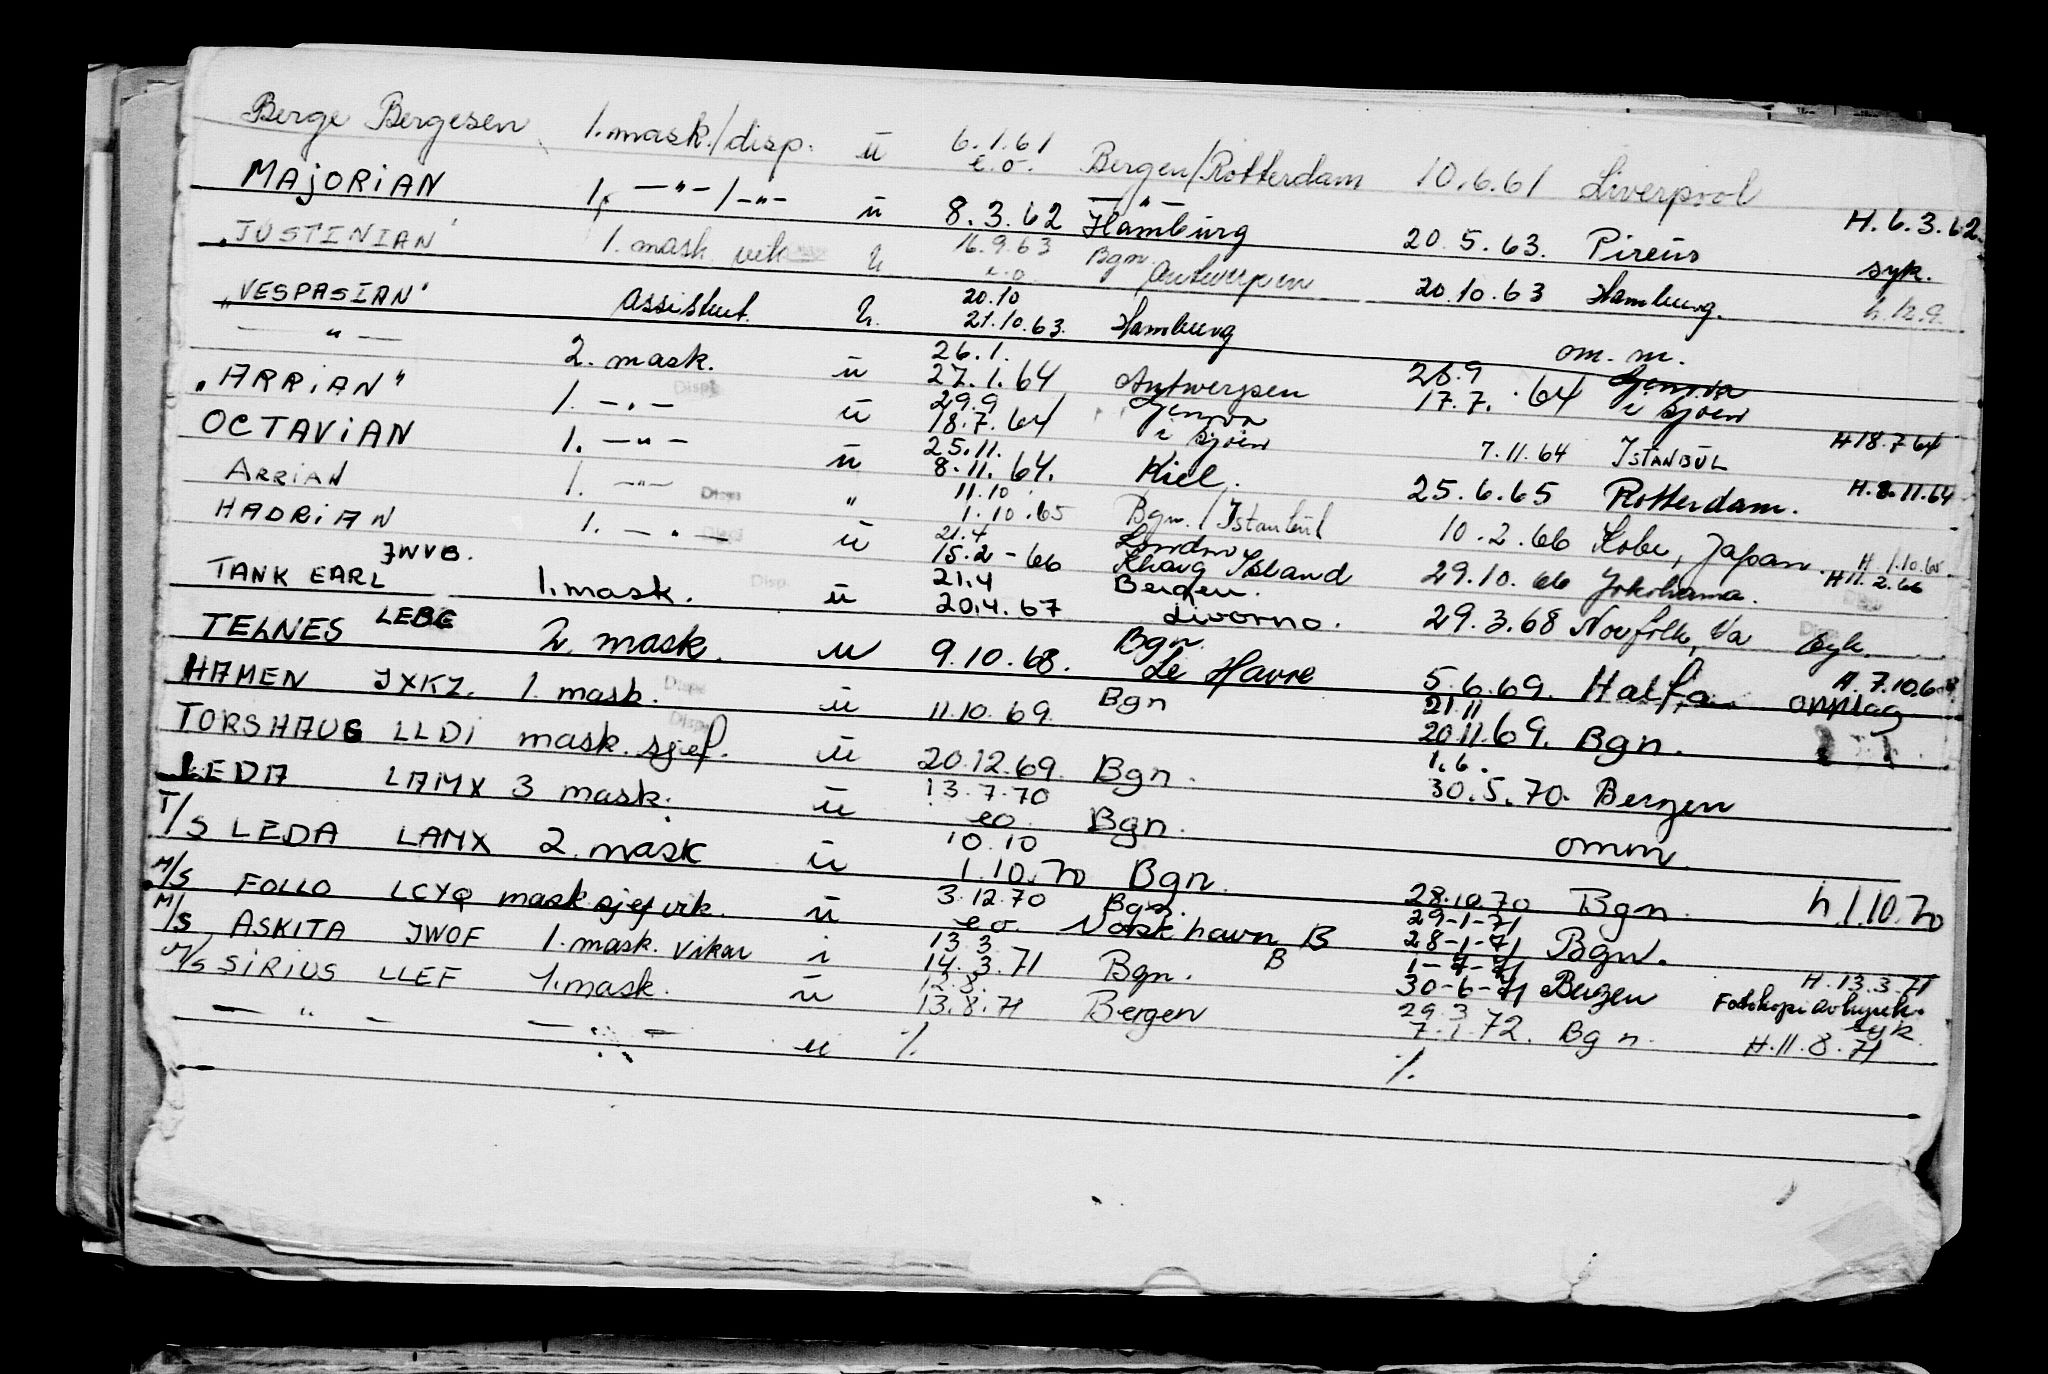 Berge Bergesen 1.mask./disp. u 6.1.61 e.o. Bergen/Rotterdam 10.6.61 Liverpool
MAJORIAN 1. —"—/—"— u 8.3.62 —"— Hamburg 20.5.63. Pireus H. 6.3.62 syk.
"JUSTINIAN" 1. mask. vik u 16.9.63 e.o Bgn. Antwerpen 20.10.63 Hamburg. h. 12.9.
"VESPASIAN" Assistent. u. 20.10 21.10.63. Hamburg om. m.
— " — 2. mask. u 26.1. 27.1.64 Antwerpen 28.9 17.7. 64 Genova i sjøen
"ARRIAN" 1. — " — Disp. u 29.9 18.7.64 Genova i sjøen 7.11.64 ISTANBUL H 18.7 64
OCTAVIAN 1. — " — u 25.11. 8.11.64. Kiel. 25.6.65 Rotterdam. H. 8.11.64
ARRIAN 1. — " — " 11.10 1.10.65 Bgn. / Istanbul 10.2.66 Kobe, Japan. H 1.10.65
HADRIAN 1. — " — u 21.4 15.2-66 London Kharg Island 29.10.66 Yokohama. H 11.2.66
TANK EARL JWVB. 1.mask. Disp. u 21.4 20.4.67 Bergen. Livorno. 29.3.68 Norfolk, Va syk.
TELNES LEBG 2. mask. u 9.10.68. Bgn. Le Havre 5.6.69. Haifa opplag H. 7.10.68
HAMEN JXKZ. 1. mask. Disp. u 11.10.69. Bgn 21.11 20.11.69. Bgn.
TORSHAUG LLDI mask.sjef. u 20.12.69 Bgn. 1.6. 30.5.70. Bergen
LEDA LAMX 3 mask. u 13.7.70 eo. Bgn. omm.
T/S LEDA LAMX 2. mask u 10.10 1.10.70 Bgn. 28.10.70 Bgn. h 1.10.70
M/S FOLLO LCYQ mask.sjef vik. u 3.12.70 eo Bgn. 29-1-71 28-1-71 Bgn.
M/S ASKITA JWOF 1. mask. vikar i 13.3 14.3.71 Bgn. B 1-7-71 30-6-71 Bergen H. 13.3.71
M/S SIRIUS LLEF 1.mask. u 12.8. 13.8.71 Bergen 29.3 7.1.72. Bgn. syk H. 11.8.71
— " — — " — u %. %.